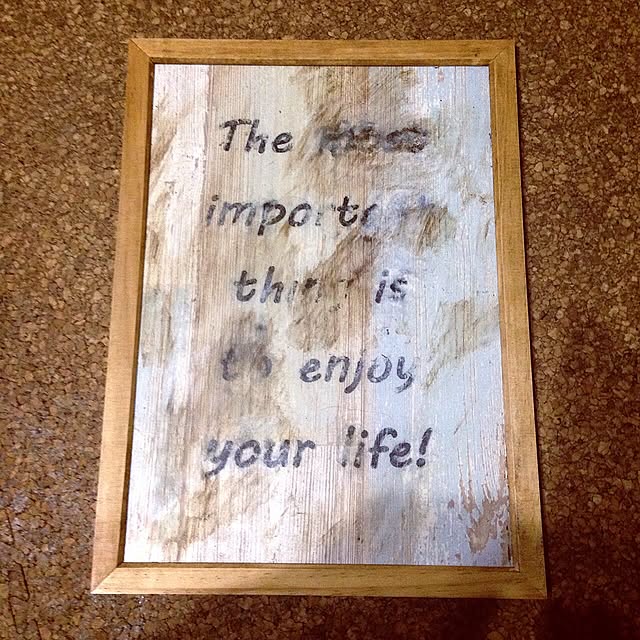 The
important
thing is
to enjoy
your life!